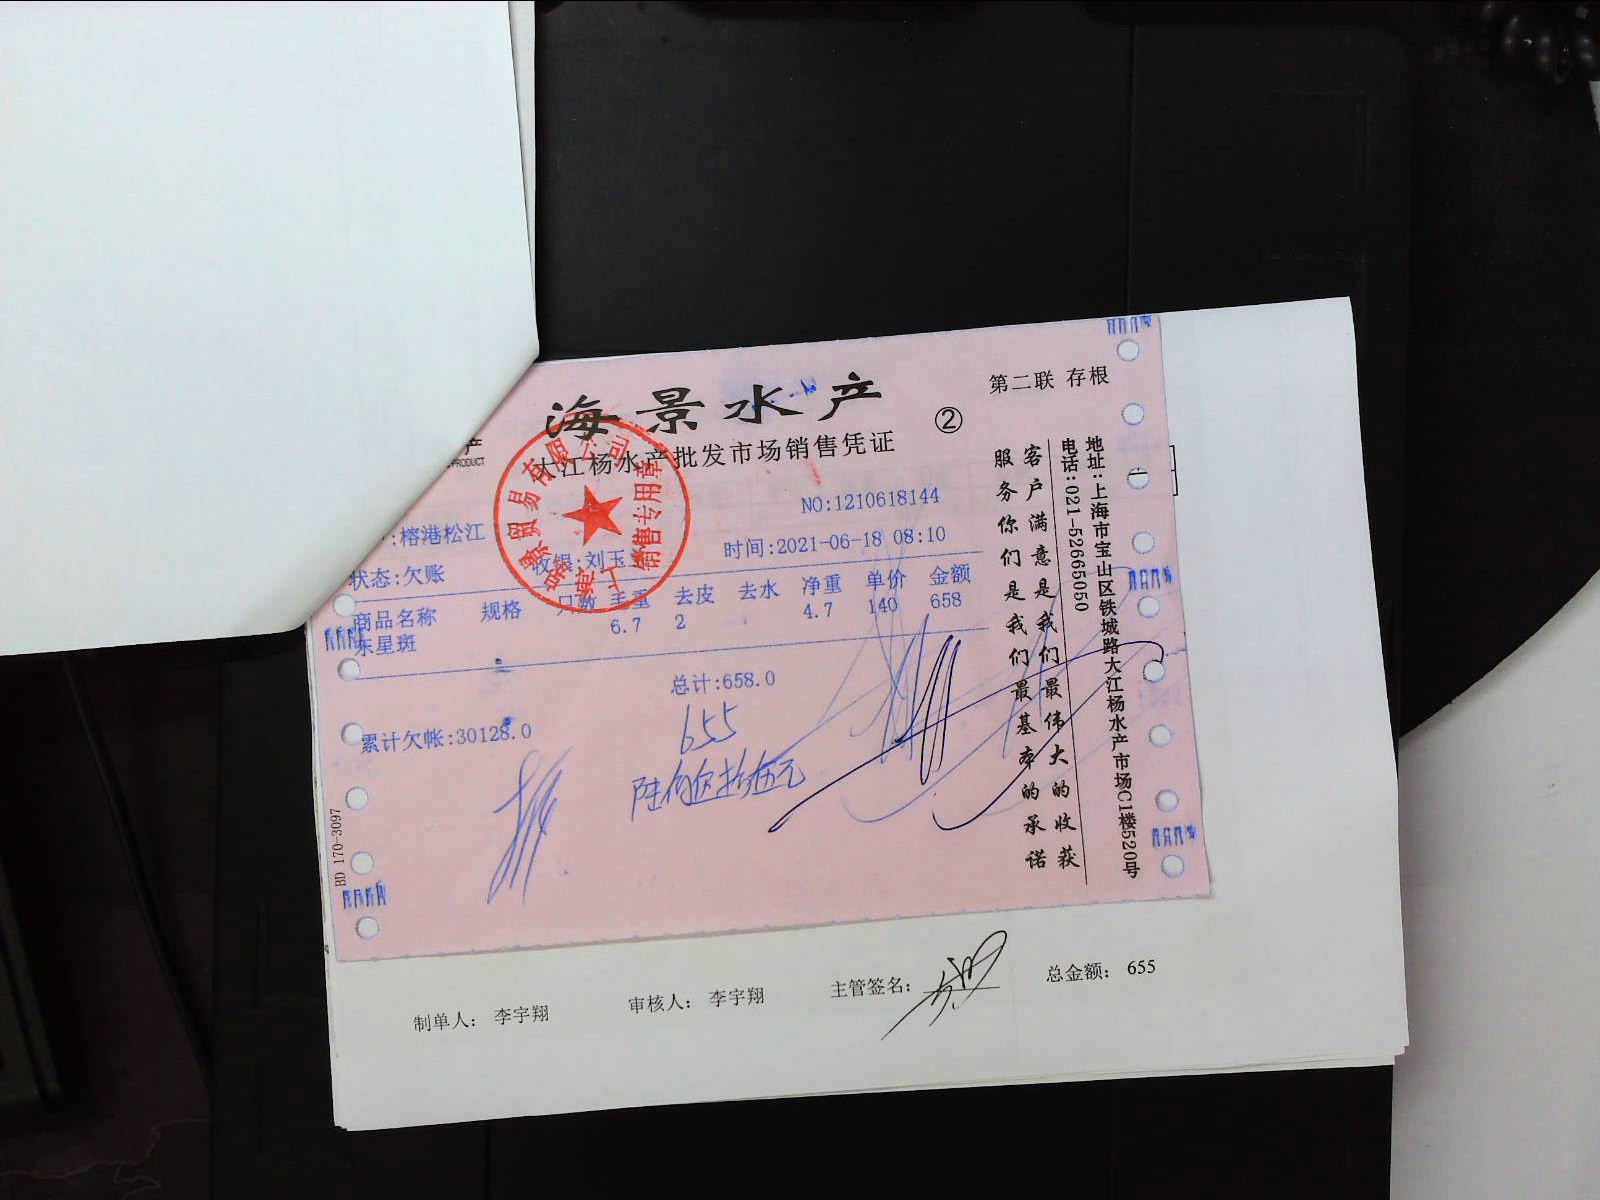 海景水产
②
第二联 存根
产
PRODUCT
大江杨水产批发市场销售凭证
NO:1210618144
:榕港松江
收银:刘玉
时间:2021-06-18 08:10
状态:欠账
商品名称 规格 只数 毛重 去皮 去水 净重 单价 金额
东星斑 6.7 2 4.7 140 658
总计:658.0
655
累计欠帐:30128.0
陆佰伍拾伍元
贸易有限公司
销售专用章
客户满意是我们最伟大的收获
服务你们是我们最基本的承诺
地址:上海市宝山区铁城路大江杨水产市场C1楼520号
电话:021-52665050
BD 170-3097
制单人: 李宇翔 审核人: 李宇翔 主管签名: 总金额: 655